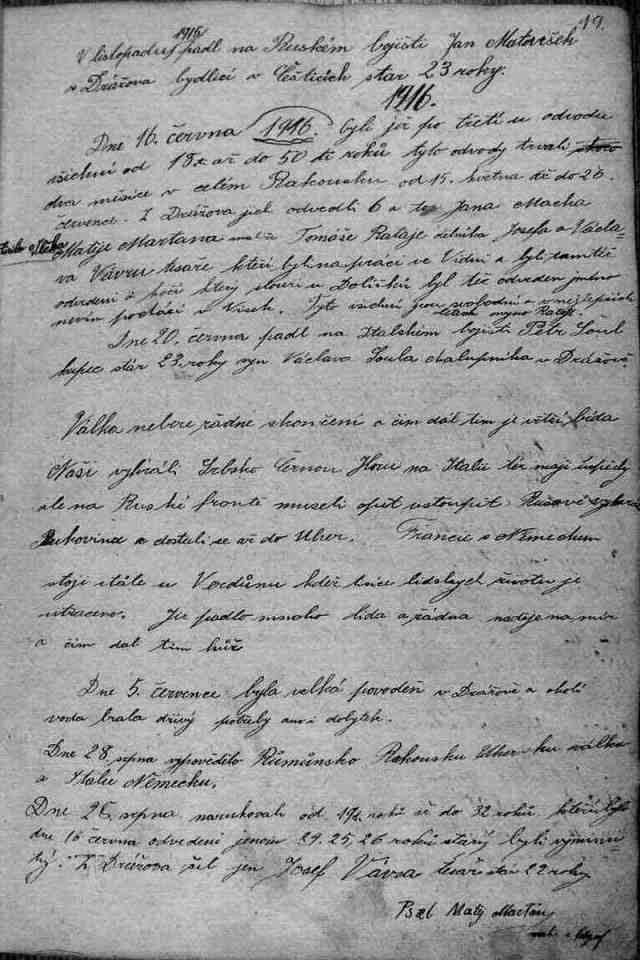 19.
V listopadu 1916 padl na Ruském bojišti Jan Matoušek
z Drážova bydlící v Češticích stár 23 roky.
1916.
Dne 16. června 1916. byli již po třetí u odvodu
všichni od 18 až do 50 ti roků tyto odvody trvali
dva měsíce v celém Rakousku od 15. května až do 26.
července. Z Drážova jich odvedli 6 a to Jana Macha
Matije Martana Tomáše Rataje dělníka Josefa a Václa-
va Vávru tesaře kteří byli na práci ve Vídni a byli tamtéž
odvedeni a který slouží u byl též odveden jméno
nevím pochází z Tyto všichni jsou svobodní a v nejlepších
letech mymo Rataje.
Dne 20. června padl na Italském bojišti Petr Šoul
kupec stár 23 roky syn Václava Šoula chalupníka v Drážově.
Válka nebere žádné skončení a čím dál tím je větší bída
Naši vybráli Srbsko Černou Horu na Italii též mají úspěchy
ale na Ruské frontě museli opět ustoupit Rusové
Bukovinu a dostali se až do Uher. Francie s Německem
stojí stále u Verdunu kdež tisíce lidských životů je
utraceno. Již padlo mnoho lidu a žádná naděje na mír
a čím dál tím hůř
Dne 5. července byla velká povodeň v Drážově a okolí
voda brala dříví potraby ano i dobytek.
Dne 28 srpna vypovědělo Růmůnsko Rakousku Uhersku válku
a Italie Německu.
Dne 26 srpna narukovali od 19ti roků až do 32 roků kteří byli
dne 16 června odvedeni jenom 24. 25, 26 roků starý byli vyminu
tý. Z Drážova šel jen Josef Vávra tesař stár 22 roky
Psal Matěj Martan